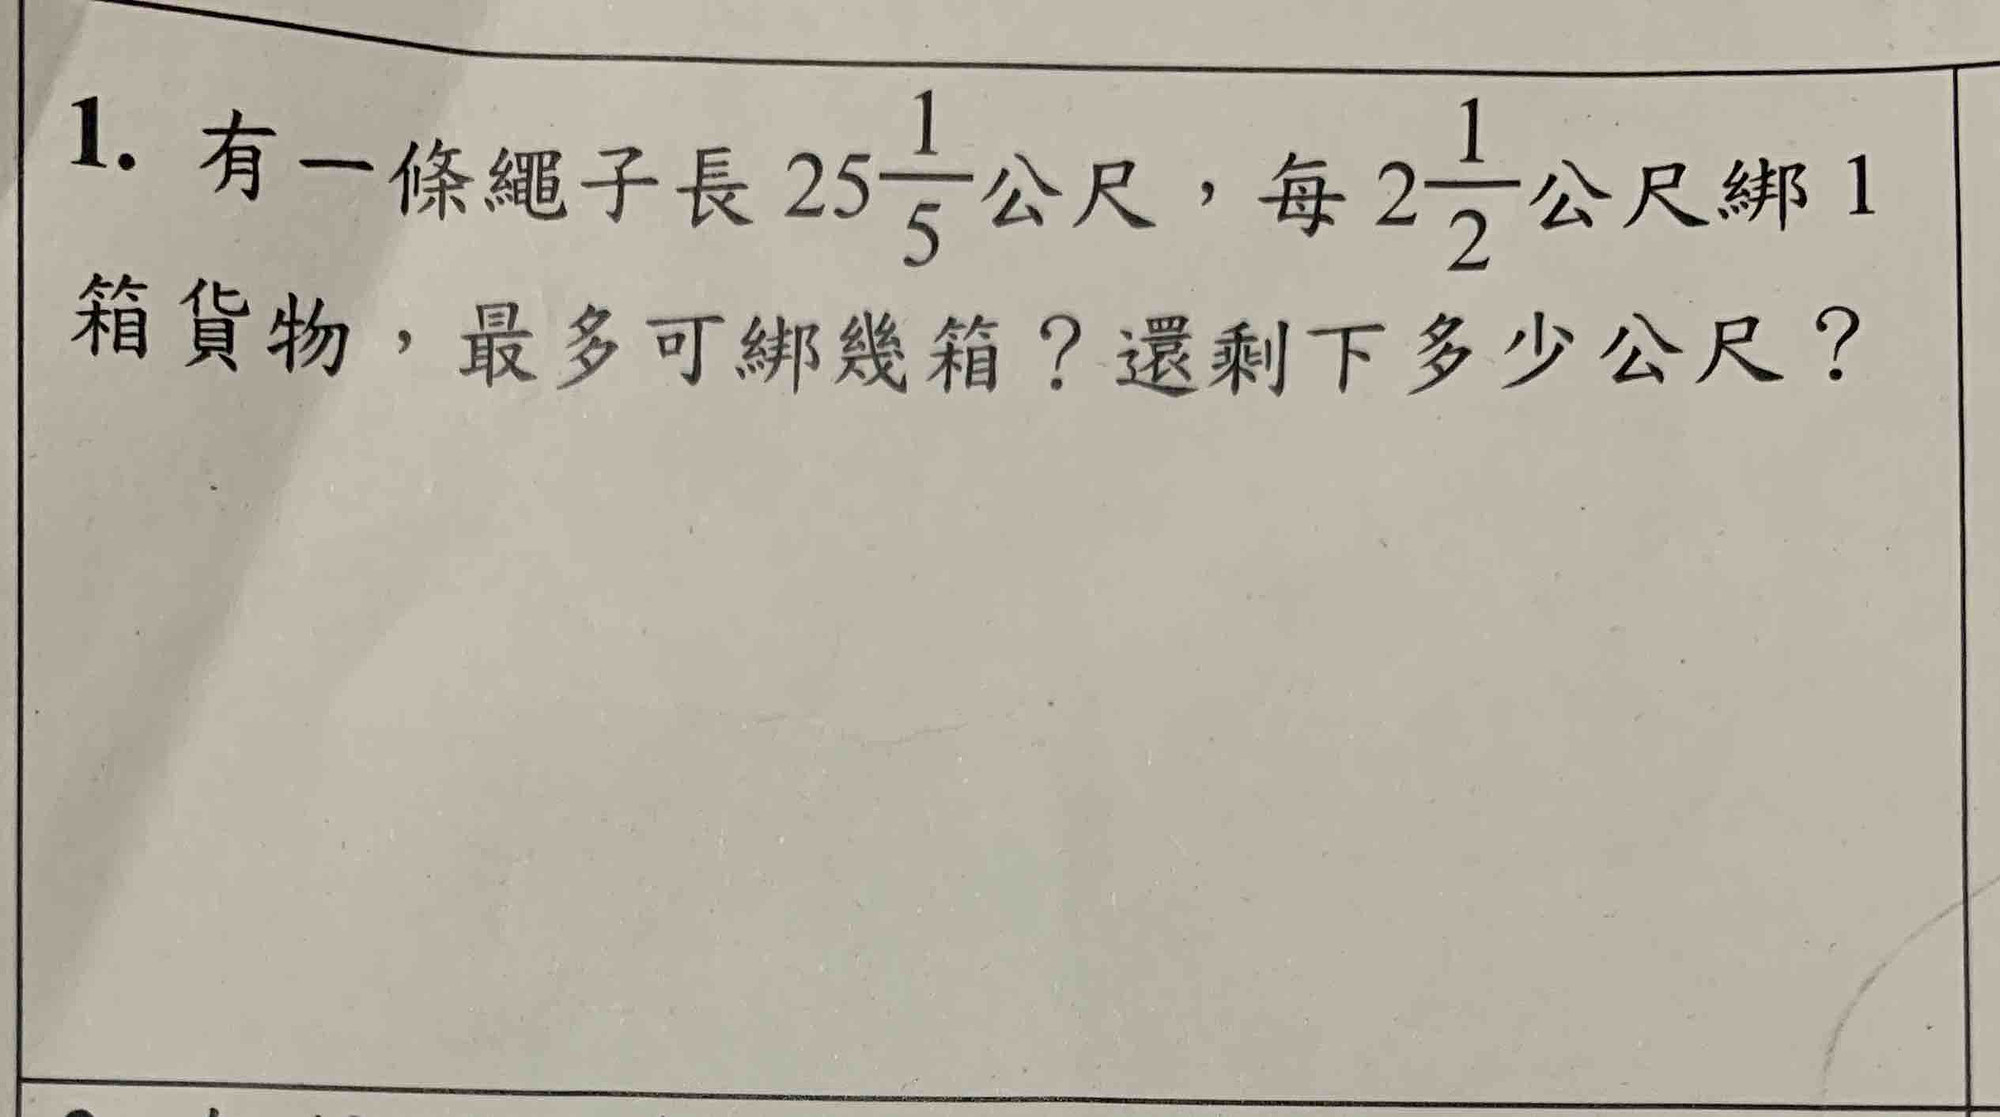 1. 有一條繩子長 25 1/5 公尺，每 2 1/2 公尺綁 1
箱貨物，最多可綁幾箱？還剩下多少公尺？